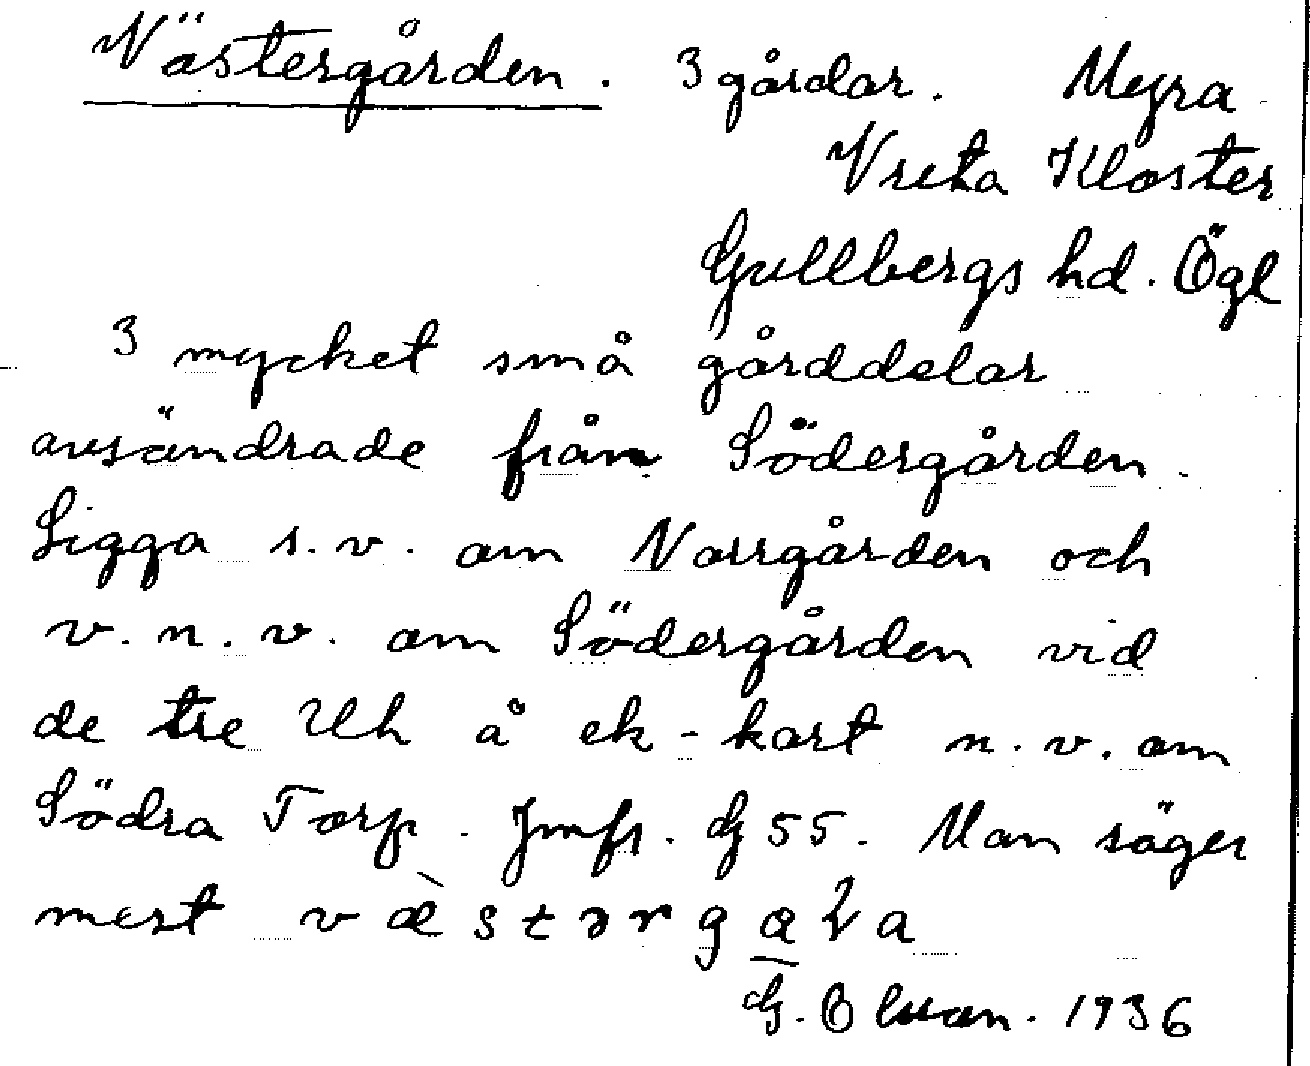 Västergården. 3 gårdar. Myra
Vreta Kloster
Gullbergs hd. Ögl
3 mycket små gårddelar
avsöndrade från Södergården.
Ligga s.v. om Norrgården och
v.n.v. om Södergården vid
de tre Uh å ek-kart n.v. om
Södra Torp. Jmfr. G 55. Man säger
mest
G. Olsson. 1936